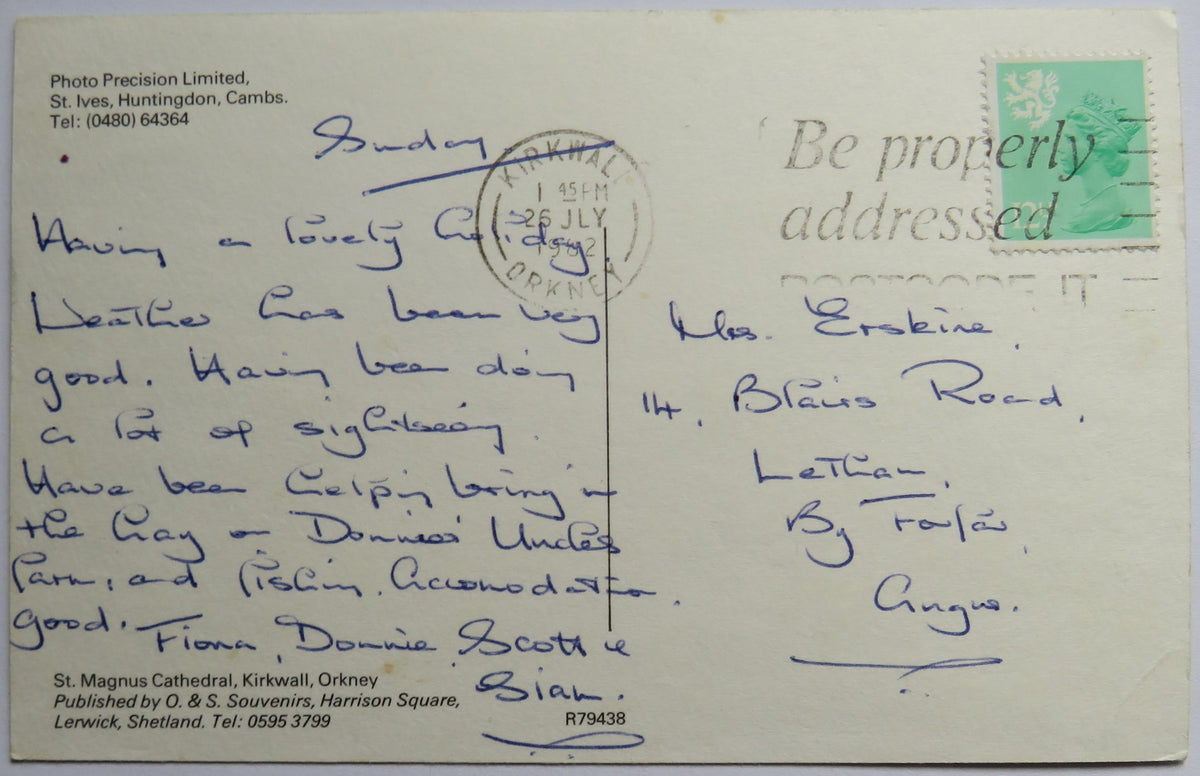 Photo Precision Limited,
St. Ives, Huntingdon, Cambs.
Tel: (0480) 64364
Sunday
Having a lovely holiday
Weather has been very
good. Having been doing
a lot of sightseeing.
Have been helping bring in
the hay on Donnie's Uncles
farm, and fishing. Accomodation
good.
Fiona, Donnie, Scott &
Sian.
St. Magnus Cathedral, Kirkwall, Orkney
Published by O. & S. Souvenirs, Harrison Square,
Lerwick, Shetland. Tel: 0595 3799
R79438
KIRKWALL
1 45PM
26 JLY
1982
ORKNEY
Be properly
addressed
POSTCODE IT
Mrs. Erskine,
14, Blairs Road,
Letham,
By Forfar,
Angus.